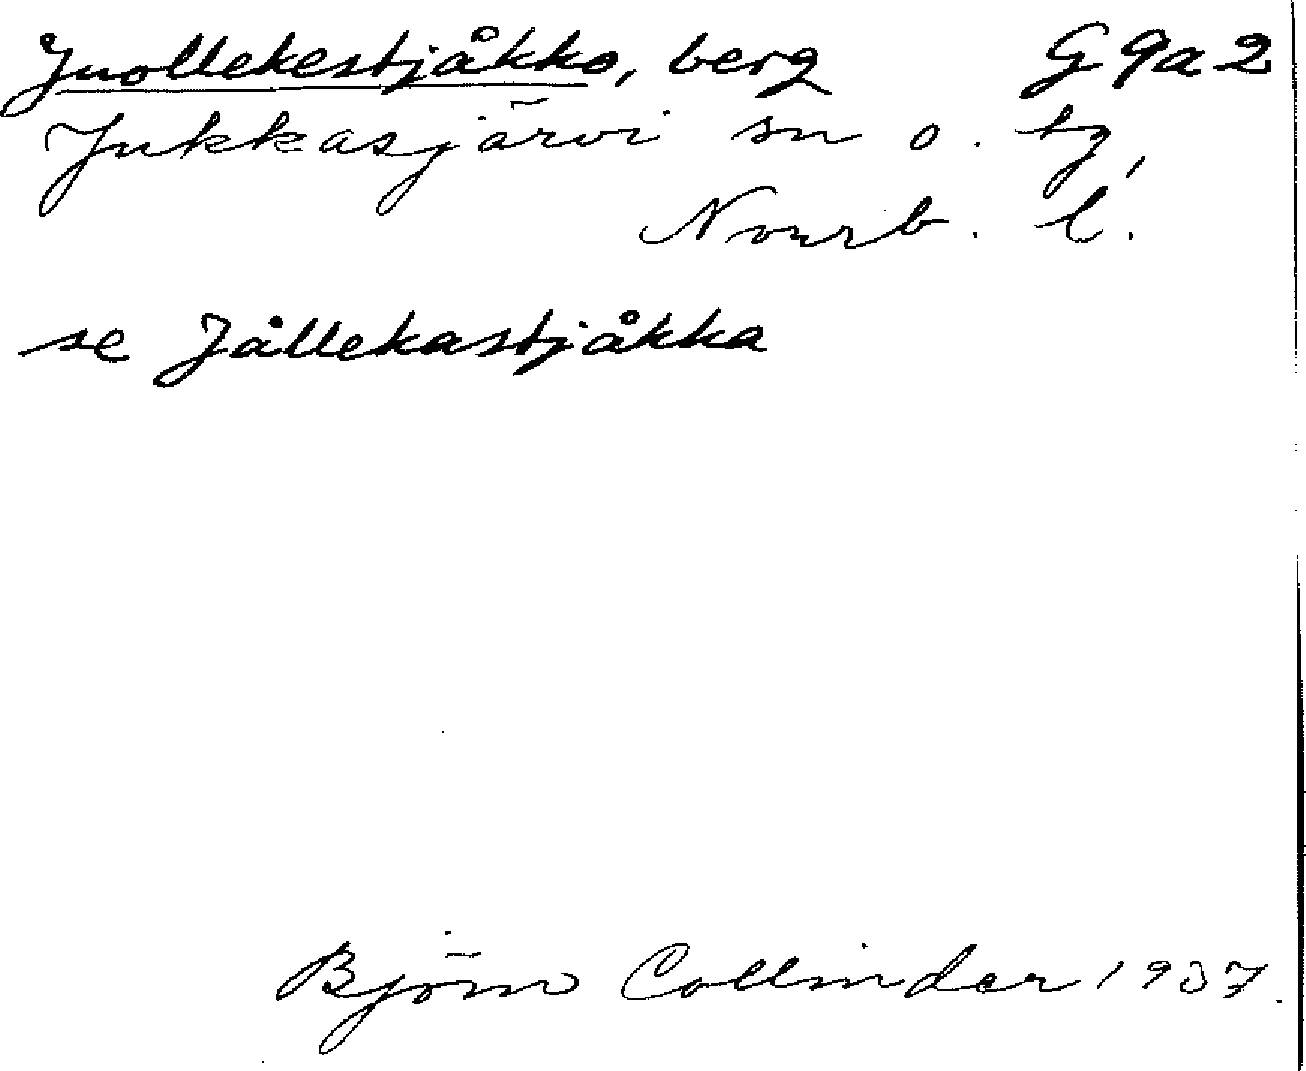 Juollekestjåkko, berg G 9a 2
Jukkasjärvi sn o. tg,
Norrb. l.
se Jållekastjåkka
Björn Collinder 1937.